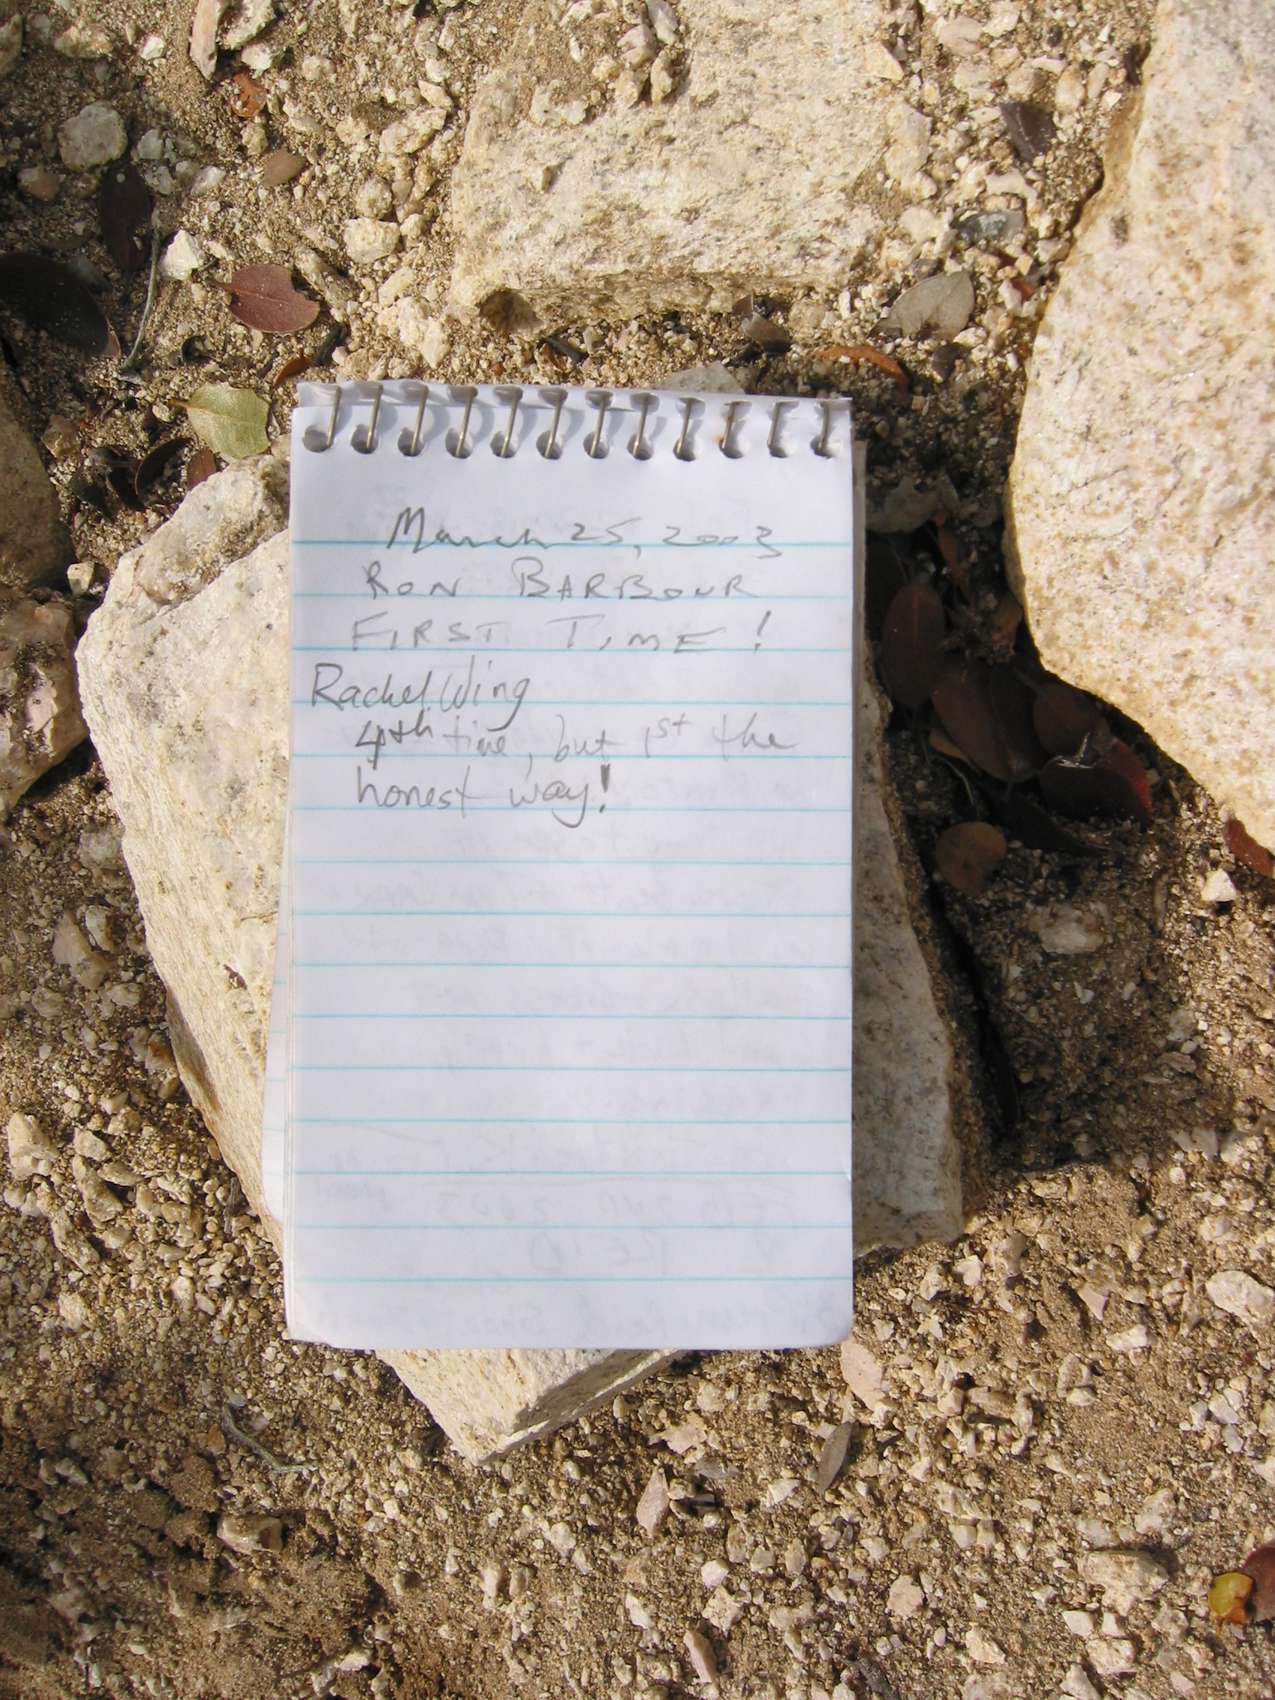 March 25, 2003
RON BARBOUR
FIRST TIME!
Rachel Wing
4th time, but 1st the
honest way!